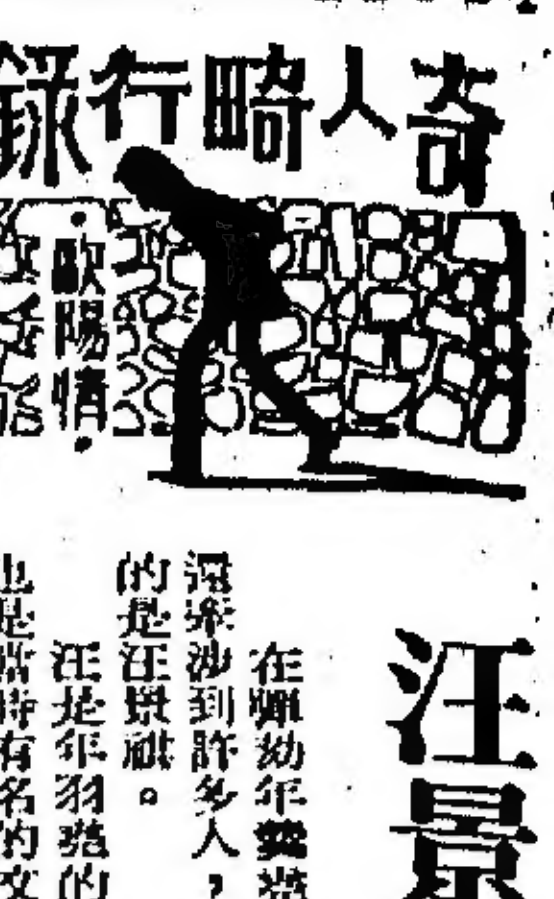 奇人畸行錄
・歐陽情・
汪景
在彈劾年羹堯
還牽涉到許多人，
的是汪景祺。
汪是年羽堯的
也是當時有名的文